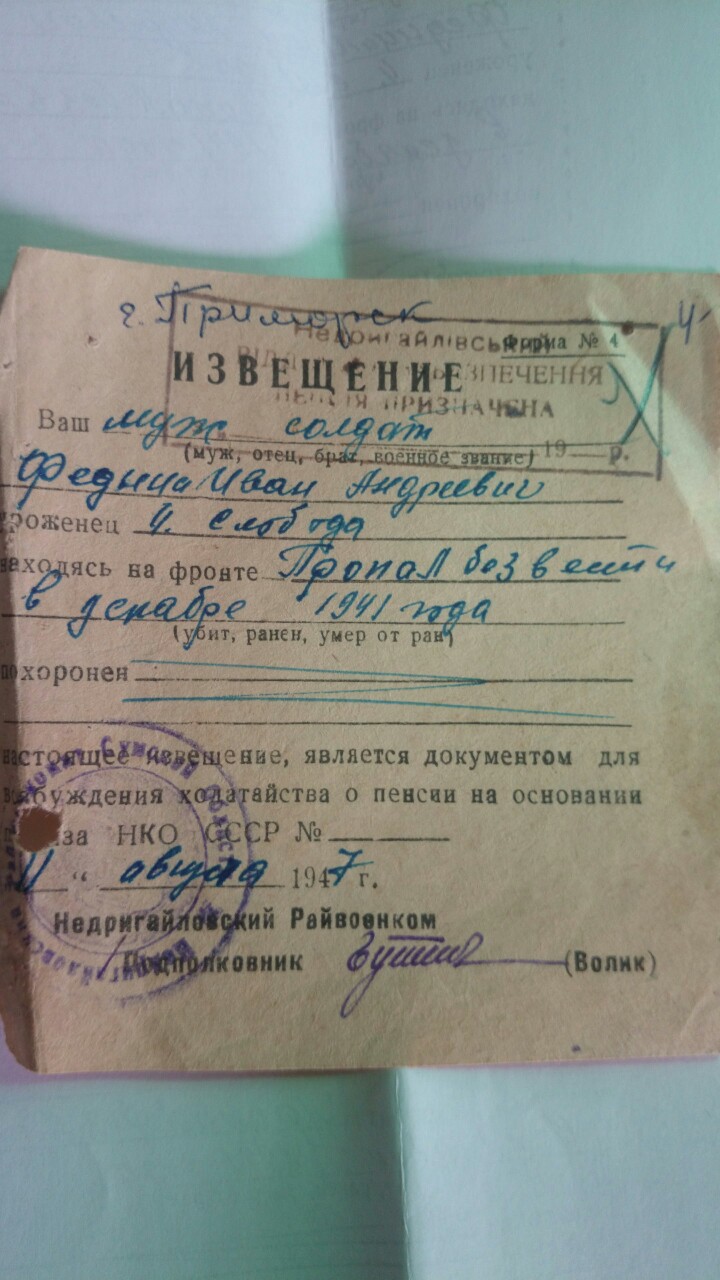 г. Приморск
4
Недригайлівський
Форма № 4
ИЗВЕЩЕНИЕ
ЗПЕЧЕННЯ
ПЕНСІЯ ПРИЗНАЧЕНА
Ваш муж солдат
19 р.
(муж, отец, брат, военное звание)
Федина Иван Андреевич
роженец Н. Слобода
находясь на фронте Пропал без вести
в декабре 1941 года
(убит, ранен, умер от ран)
похоронен
настоящее извещение, является документом для
возбуждения ходатайства о пенсии на основании
НКО СССР №
11 " августа 1947 г.
Недригайловский Райвоенком
Подполковник (Волик)